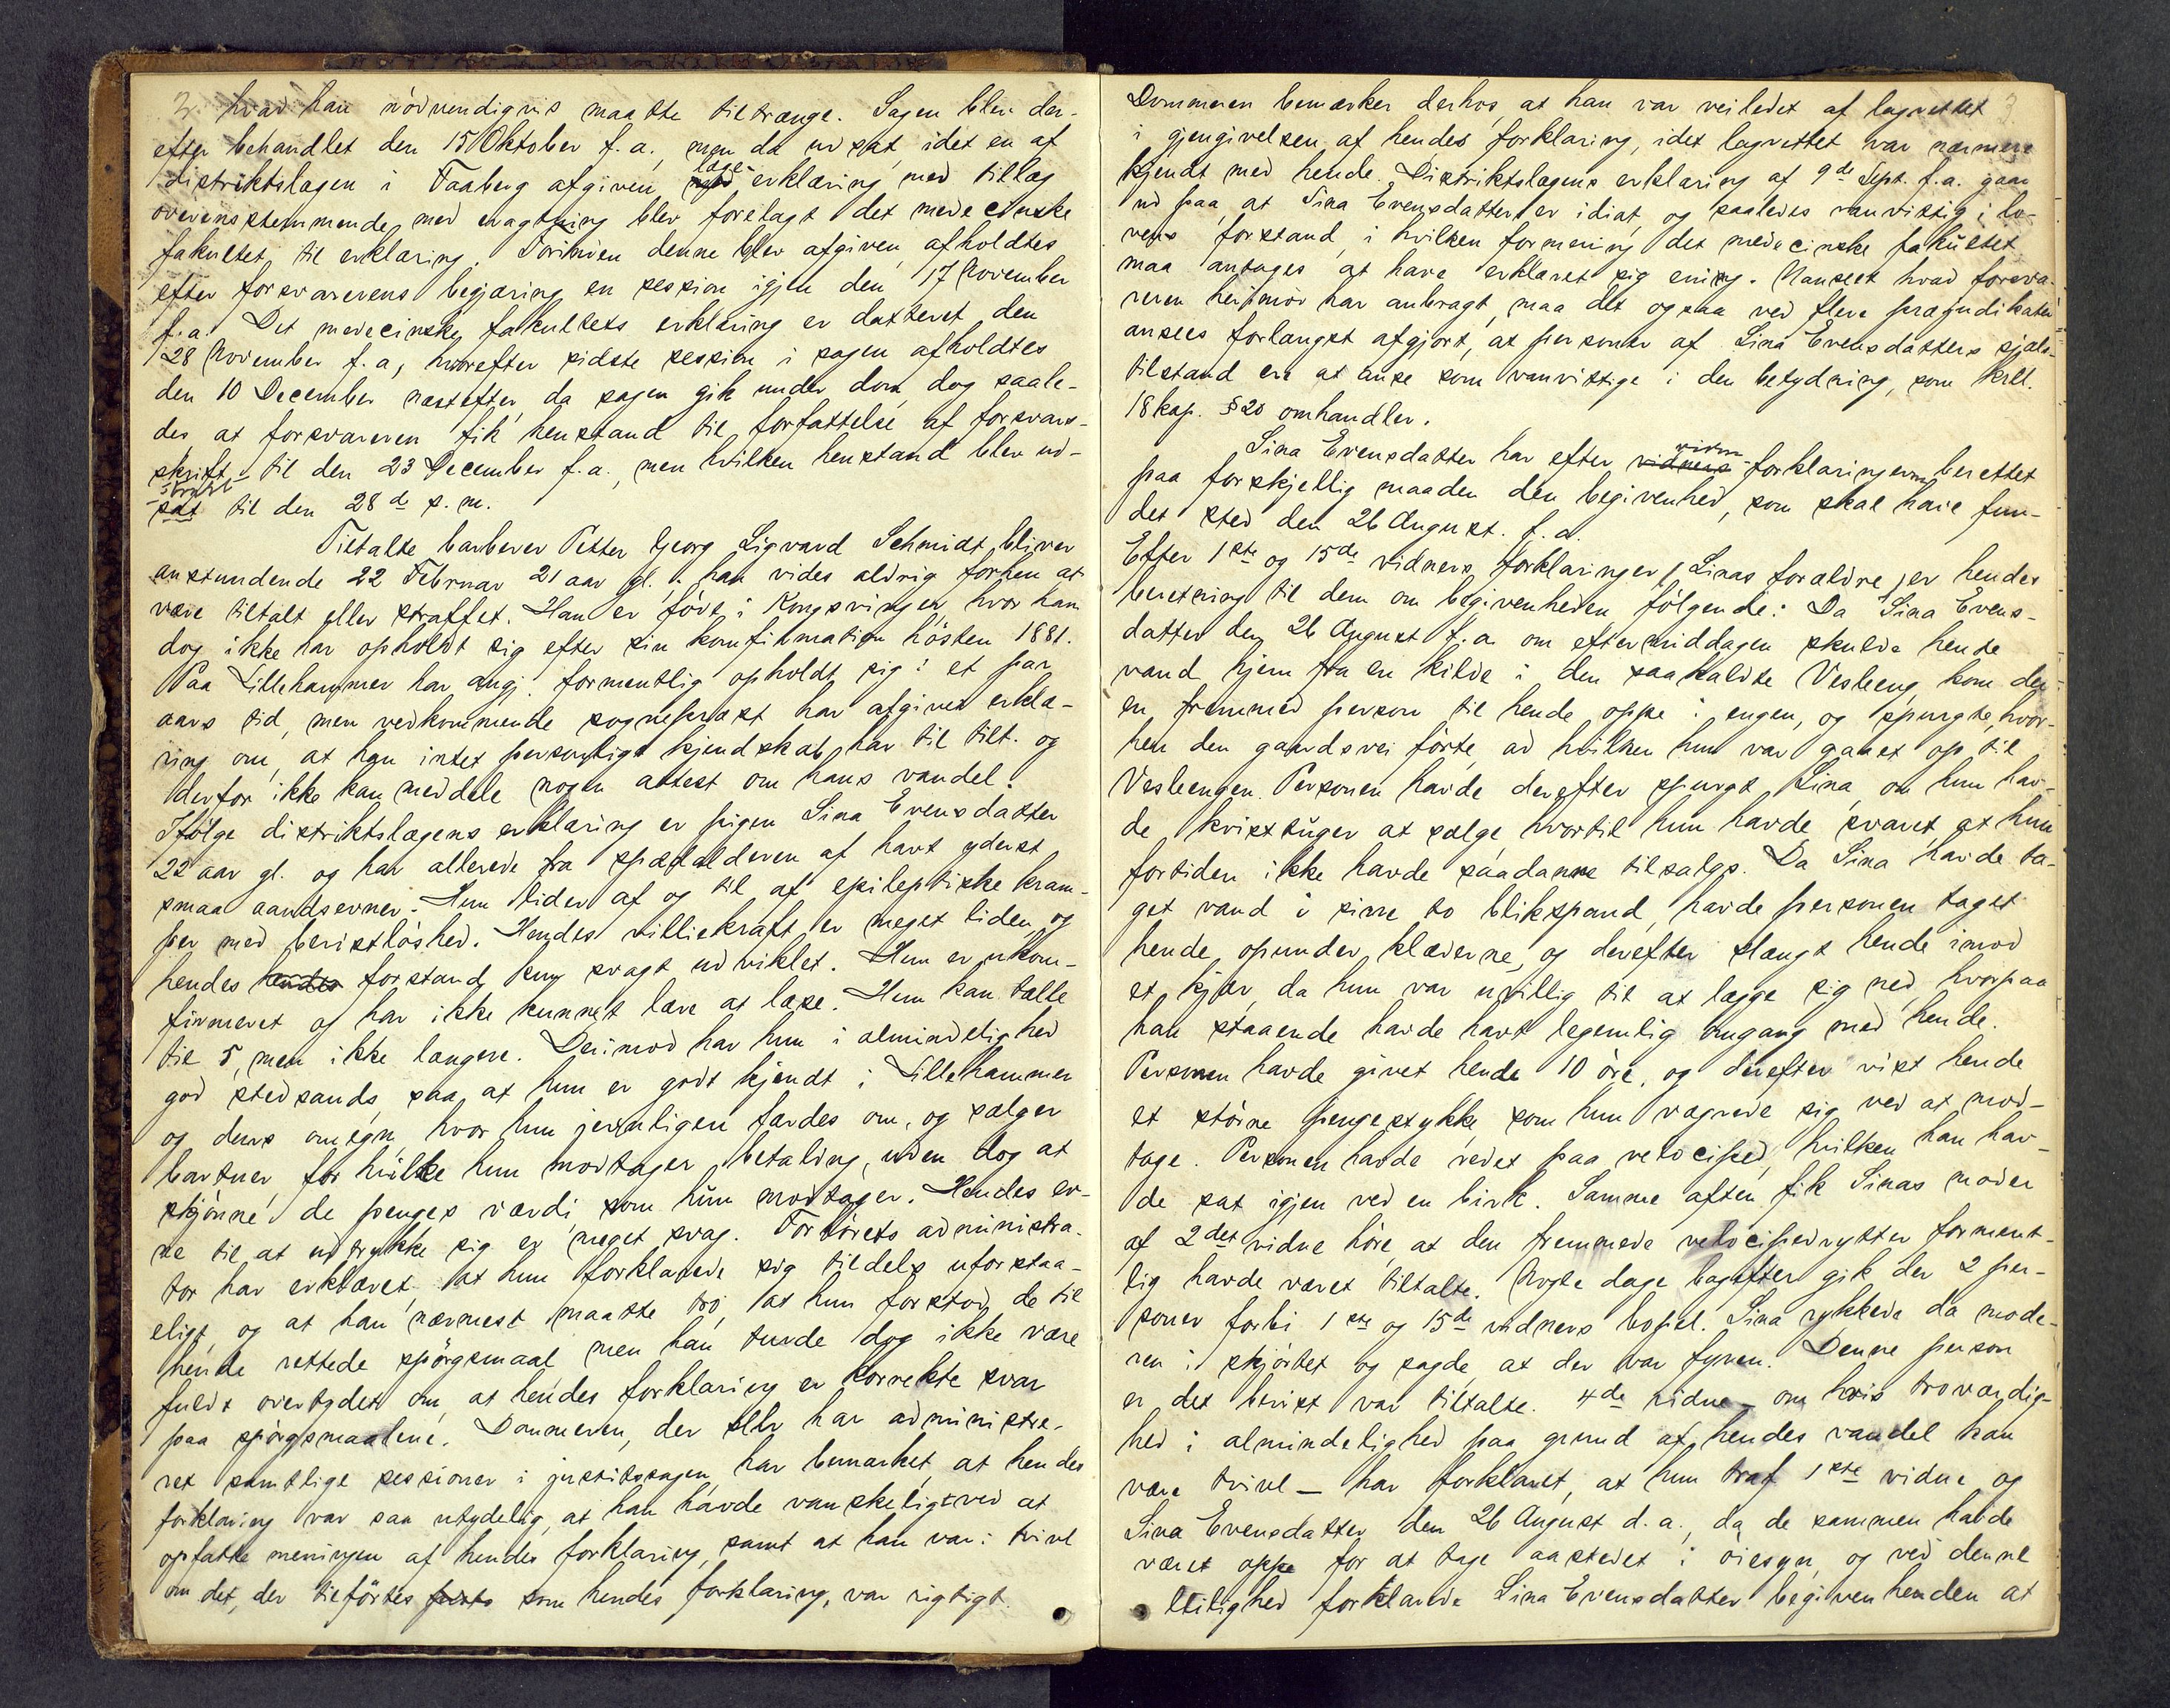 2. hvad han nödvendigvis maatte tiltrænge. Sagen blev der-
efter behandlet den 15 Oktober f. a., men da udsat, idet en af
distriktslægen i Faaberg afgiven læge-erklæring med tillæg
overensstemmende med eragtning blev forelagt det medecinske
fakultet til erklæring. Forinden denne blev afgiven, afholdtes
efter forsvarerens begjæring en session igjen den 17 November
f. a. Det medecinske fakultets erklæring er datteret den
28 November f. a., hvorefter sidste session i sagen afholdtes
den 10 December næstefter, da sagen gik under dom, dog saale-
des at forsvareren fik henstand til forfattelse af forsvars-
skrift til den 23 December f. a., men hvilken henstand blev ud-
strakt til den 28de s. m.
Tiltalte barberer Petter Georg Sigvard Schmidt bliver
anstundende 22 Februar 21 aar gl. - han vides aldrig forhen at
være tiltalt eller straffet. Han er födt i Kongsvinger, hvor han
dog ikke har opholdt sig efter sin konfirmation hösten 1881.
Paa Lillehammer har angj. formentlig opholdt sig i et par
aars tid, men vedkommende sognepræst har afgivet erklæ-
ring om, at han intet personligt kjendskab har til tilt. og
derfor ikke kan meddele nogen attest om hans vandel.
Ifölge distriktslægens erklæring er pigen Sina Evensdatter
22 aar gl. og har allerede fra spædalderen af havt yderst
smaa aandsevner. Hun lider af og til af epileptiske kram-
per med bevistlöshed. Hendes villiekraft er meget liden og
hendes hendes forstand kun svagt udviklet. Hun er ukon-
firmeret og har ikke kunnet lære at læse. Hun kan tælle
til 5, men ikke længere. Derimod har hun i almindelighed
god stedsands, saa at hun er godt kjendt i Lillehammer
og dens omegn, hvor hun jevnligen færdes om, og sælger
bærtuer, for hvilke hun modtager betaling, uden dog at
skjönne de penges værdi som hun modtager. Hendes ev-
ne til at udtrykke sig er meget svag. Forhörets administra-
tor har erklæret, at hun forklarede sig tildels uforstaa-
eligt, og at han nærmest maatte tro, at hun forstod de til
hende rettede spörgsmaal men han turde dog ikke være
fuldt overtydet om, at hendes forklaring er korrekte svar
paa spörgsmaalene. Dommeren, der selv har administre-
ret samtlige sessioner i justitssagen, har bemærket, at hendes
forklaring var saa utydelig, at han havde vanskeligt ved at
opfatte meningen af hendes forklaring, samt at han var i tvivl
om det, der tilförtes som hendes forklaring, var rigtigt.
Dommeren bemærker derhos, at han var veiledet af lagrettet 3
i gjengivelsen af hendes forklaring, idet lagrettet var nærmere
kjendt med hende. Distriktslægens erklæring af 9de Sept. f. a. gaar
ud paa, at Sina Evensdatter er idiot, og saaledes vanvittig i lo-
vens forstand, i hvilken formening det medecinske fakultet
maa antages at have erklæret sig enig. Uanseet hvad forsva-
reren herimod har anbragt, maa det ogsaa ved flere præjudikater
ansees forlængst afgjort, at personer af Sina Evensdatters sjæls-
tilstand ere at anse som vanvittige i den betydning, som krll.
18 kap. § 20 omhandler.
Sina Evensdatter har efter vidneforklaringerne berettet
paa forskjellig maaden den begivenhed, som skal have fun-
det sted den 26 August. f. a.
Efter 1ste og 15de vidners forklaringer, Sinas forældre, er hendes
beretning til dem om begivenheden fölgende: Da Sina Evens-
datter den 26 August f. a. om eftermiddagen skulde hente
vand hjem fra en kilde i den saakaldte Vesleeng, kom der
en fremmed person til hende oppe i engen, og spurgte, hvor-
hen den gaardsvei förte, ad hvilken hun var gaaet op til
Vesleengen. Personen havde derefter spurgt Sina, om hun hav-
de kvisttuger at sælge, hvortil hun havde svaret, at hun
fortiden ikke havde saadanne tilsalgs. Da Sina havde ta-
get vand i sine to blikspand, havde personen taget
hende opunder klæderne, og derefter slængt hende imod
et kjær, da hun var uvillig til at lægge sig ned, hvorpaa
han staaende havde havt legemlig omgang med hende.
Personen havde givet hende 10 öre, og derefter vist hende
et större pengestykke, som hun vægrede sig ved at mod-
tage. Personen havde redet paa velociped, hvilken han hav-
de sat igjen ved en birk. Samme aften fik Sinas moder
af 2det vidne höre, at den fremmede velocipedrytter forment-
lig havde været tiltalte. Nogle dage bagefter gik der 2 per-
soner forbi 1ste og 15de vidners bopæl. Sina rykkede da mode-
ren i skjörtet og sagde, at der var fyren. Denne person
er det bevist var tiltalte. 4de vidne - om hvis troværdig-
hed i almindelighed paa grund af hendes vandel kan
være tvivl - har forklaret, at hun traf 1ste vidne og
Sina Evensdatter den 26 August d. a., da de sammen havde
været oppe for at tage aastedet i öiesyn, og ved denne
leilighed forklarede Sina Evensdatter begivenheden at